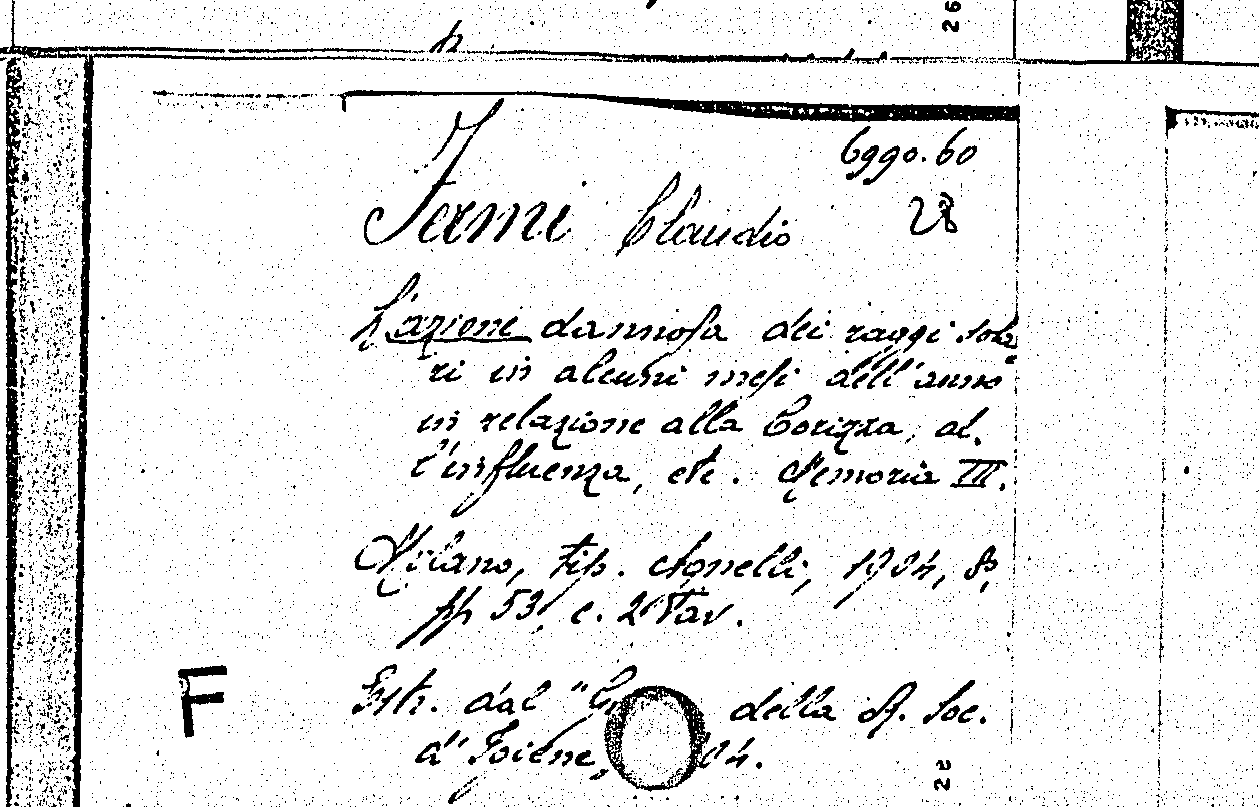 6990.60
Fermi Claudio 28
L'azione dannosa dei raggi sola
ri in alcuni mesi dell'anno
in relazione alla Corizza, al
l'influenza, etc. Memoria III.
Milano, tip. Agnelli, 1904, 8,
pp 53, c. 2 Tav.
Estr. dal "G della R. Soc.
d'Igiene, 04.
F